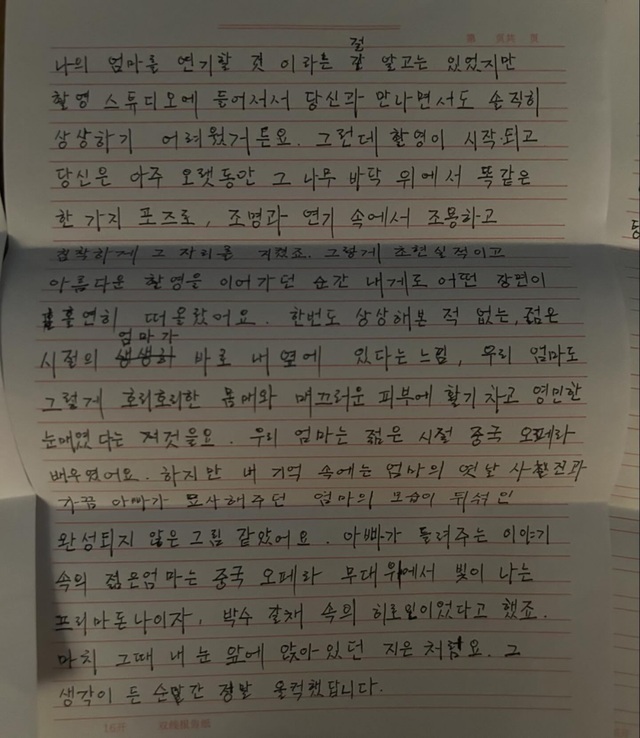 第 页共 页
절
나의 엄마를 연기할 것 이라는 잘 알고는 있었지만
촬영 스튜디오에 들어서서 당신과 만나면서도 솔직히
상상하기 어려웠거든요. 그런데 촬영이 시작되고
당신은 아주 오랫동안 그 나무 바닥 위에서 똑같은
한 가지 포즈로, 조명과 연기 속에서 조용하고
침착하게 그 자리를 지켰죠. 그렇게 초현실적이고
아름다운 촬영을 이어가던 순간 내게로 어떤 장면이
홀연히 떠올랐어요. 한번도 상상해본 적 없는, 젊은
엄마가
시절의 생생히 바로 내 옆에 있다는 느낌, 우리 엄마도
그렇게 호리호리한 몸매와 매끄러운 피부에 활기차고 영민한
눈매였다는 저것을요. 우리 엄마는 젊은 시절 중국 오페라
배우였어요. 하지만 내 기억 속에는 엄마의 옛날 사진과
가끔 아빠가 묘사해주던 엄마의 모습이 뒤섞인
완성되지 않은 그림 같았어요. 아빠가 들려주는 이야기
속의 젊은엄마는 중국 오페라 무대위에서 빛이 나는
프리마돈나이자, 박수 갈채 속의 히로인이었다고 했죠.
마치 그때 내 눈 앞에 앉아있던 지은 처럼요. 그
생각이 든 순간 정말 울컥했답니다.
16开 双线报告纸